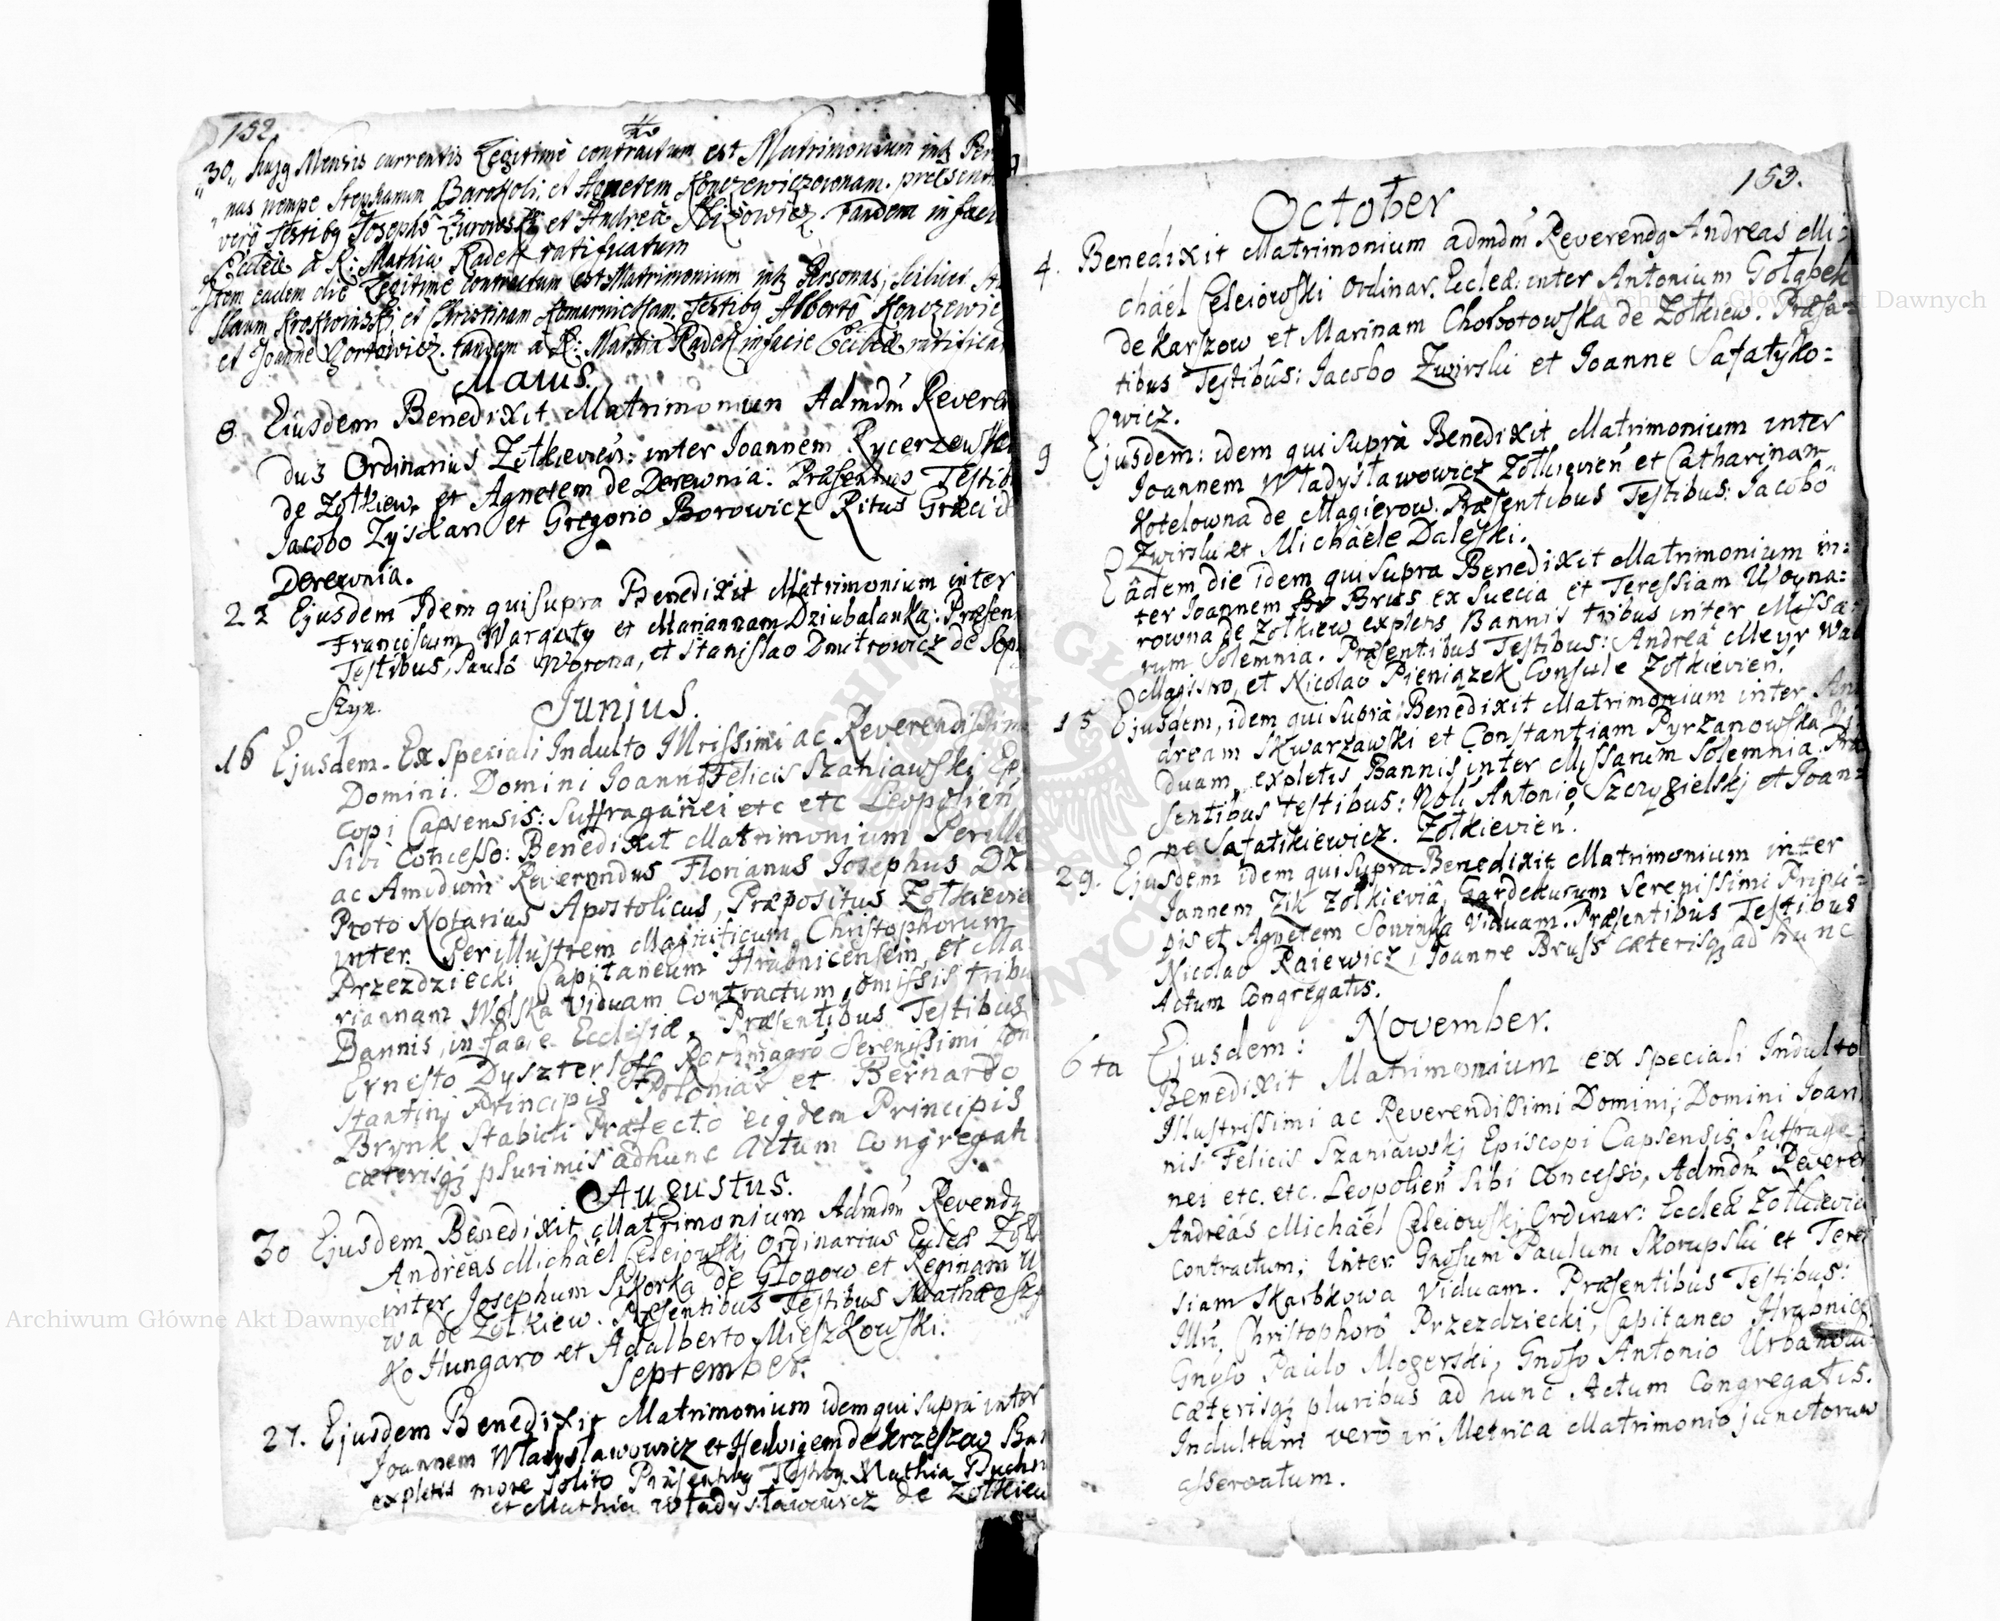 152.
30. hujg Mensis currentis Legitimè contractum est Matrimonium intʒ Per
nas nempe Stephanum et Agnetem Konczewiczownam. præsent
verò Testibg Josephô Zurowski et Andreâ Tandem in facie
Eccleiæ à R: Mathia Radek ratificatum
Item eadem die Legitimè contractum est Matrimonium intʒ Personas, scilicet
et Christinam Komarnickam. Testibg Albertô Konczewic
et Joanne Gorrowicz. tandem à R: Mathia Radek in facie Eccleiæ ratificat
Maius.
8 Eiusdem Benedixit Matrimonium Admdm̃ Reveren
dus Ordinarius Zołkievien̄: inter Joannem Rycerzewski
de Zołkiew, et Agnetem de Derewnia. Præsentibus Testib
Jacobo Zyskan et Gregorio Borowicz Ritus Græci d
Derewnia.
22 Ejusdem Idem qui supra Benedixit Matrimonium inter
Franciscum Wargaty et Mariannam Dziubalanka: Præsen
Testibus, Paulô Worona, et Stanislao Dmitrowicz de Sopu
szyn.
Junius.
16 Ejusdem. Ex speciali Indulto Illrissimi ac Reverendissimi
Domini. Domini Joannis Felicis Szaniawski Epi
copi Capsensis: Suffraganei etc etc Leopolien̄
sibi Concesso: Benedixit Matrimonium Perillu
ac Amdum̃ Reverendus Florianus Josephus Dz
Proto Notarius Apostolicus, Præpositus Zołkievien
inter. Perillustrem Magnificum Christophorum
Przezdziecki Capitaneum Hrubnicensem, et Ma
riannam Wolska Viduam Contractum, omissis tribu
Bannis, in facie Ecclesiæ, Præsentibus Testibus
Ernesto Dyszterloff Rothmagro Serenissimi Con
stantini Principis Poloniar̃ et Bernardo
Brynk Stabuli Præfecto eiqdem Principis
cæterisqʒ plurimis ad hunc Actum Congregati
Augustus.
30 Ejusdem Benedixit Matrimonium Admdm̃ Revendg
Andreas Michaël Celeiowski Ordinarius Ecleæ Zołk
inter Josephum Sikorka de Głogow et Reginam U
wa de Zołkiew. Præsentibus Testibus Mathæo Sz
ko Hungaro et Adalberto Mieszkowski.
September.
27. Ejusdem Benedixit Matrimonium idem qui supra inter
Joannem Władysławowicz et Hedvigem de Krzeszow Ban
expletis more solito Præsentibg Testibg Mathia Duchn
et Mathia Władysławowicz de Zołkiew
153.
October
4. Benedixit Matrimonium admdm̃ Reverendg Andreas Mi=
chaël Celeiowski Ordinar. Ecclæ: inter Antonium Gołąbek
de Karszow et Marinam Chobotowska de Zołkiew. Præse=
tibus Testibus: Jacobo Zwirski et Joanne Safatyko=
wicz.
9 Ejusdem: idem qui suprà Benedixit Matrimonium inter
Joannem Władysławowicz Zołkievien̄ et Catharinam
Kotelowna de Magierow. Præsentibus Testibus: Jacobô
Zwirski et Michaële Daleski.
Eâdem die idem qui supra Benedixit Matrimonium in=
ter Joannem Brus ex Suecia et Teressiam Woyna=
rowna de Zołkiew expletis Bannis tribus inter Missa=
rum Solemnia. Præsentibus Testibus: Andreâ Meyr
Magistro, et Nicolao Pieniązek Consule Zołkievien̄.
15 Ejusdem, idem qui suprà Benedixit Matrimonium inter An
dream Skwarzawski et Constantiam Pyrzanowska Vi
duam, expletis Bannis inter Missarum Solemnia. Præ
sentibus testibus: Nobi Antonio Szczygielskj et Joan=
ne Safatikiewicz. Zołkievien̄.
29. Ejusdem idem qui supra Benedixit Matrimonium inter
Jannem Zik Zołkieviâ, Gardekurum Serenissimi Princi=
pis et Agnetem Sowinska Viduam. Præsentibus Testibus
Nicolao Raiewicz, Joanne Bruss cæterisqʒ ad hunc
Actum Congregatis.
November.
6ta Ejusdem:
Benedixit Matrimonium ex speciali Indulto
Illustrissimi ac Reverendissimi Domini, Domini Joan
nis Felicis Szaniawskj Episcopi Capsensis Suffraga=
nei etc. etc. Leopolien̄ sibi Concesso, Admdm̃ Reveren
Andreas Michaël Celeiowskj Ordinar: Eccleæ Zołkievien
Contractum; inter Gnosum Paulum Skorupski et Tere
siam Skarbkowa Viduam. Præsentibus Testibus:
Illri, Christophorô Przezdziecki, Capitaneo Hrabnicz
Gnoso Paulo Mogerski, Gnoso Antonio Urbanow
cæterisqʒ pluribus ad hunc Actum Congregatis.
Indultum verò in Metrica Matrimonio junctorum
asservatum.
Archiwum Główne Akt Dawnych
Archiwum Główne Akt Dawnych